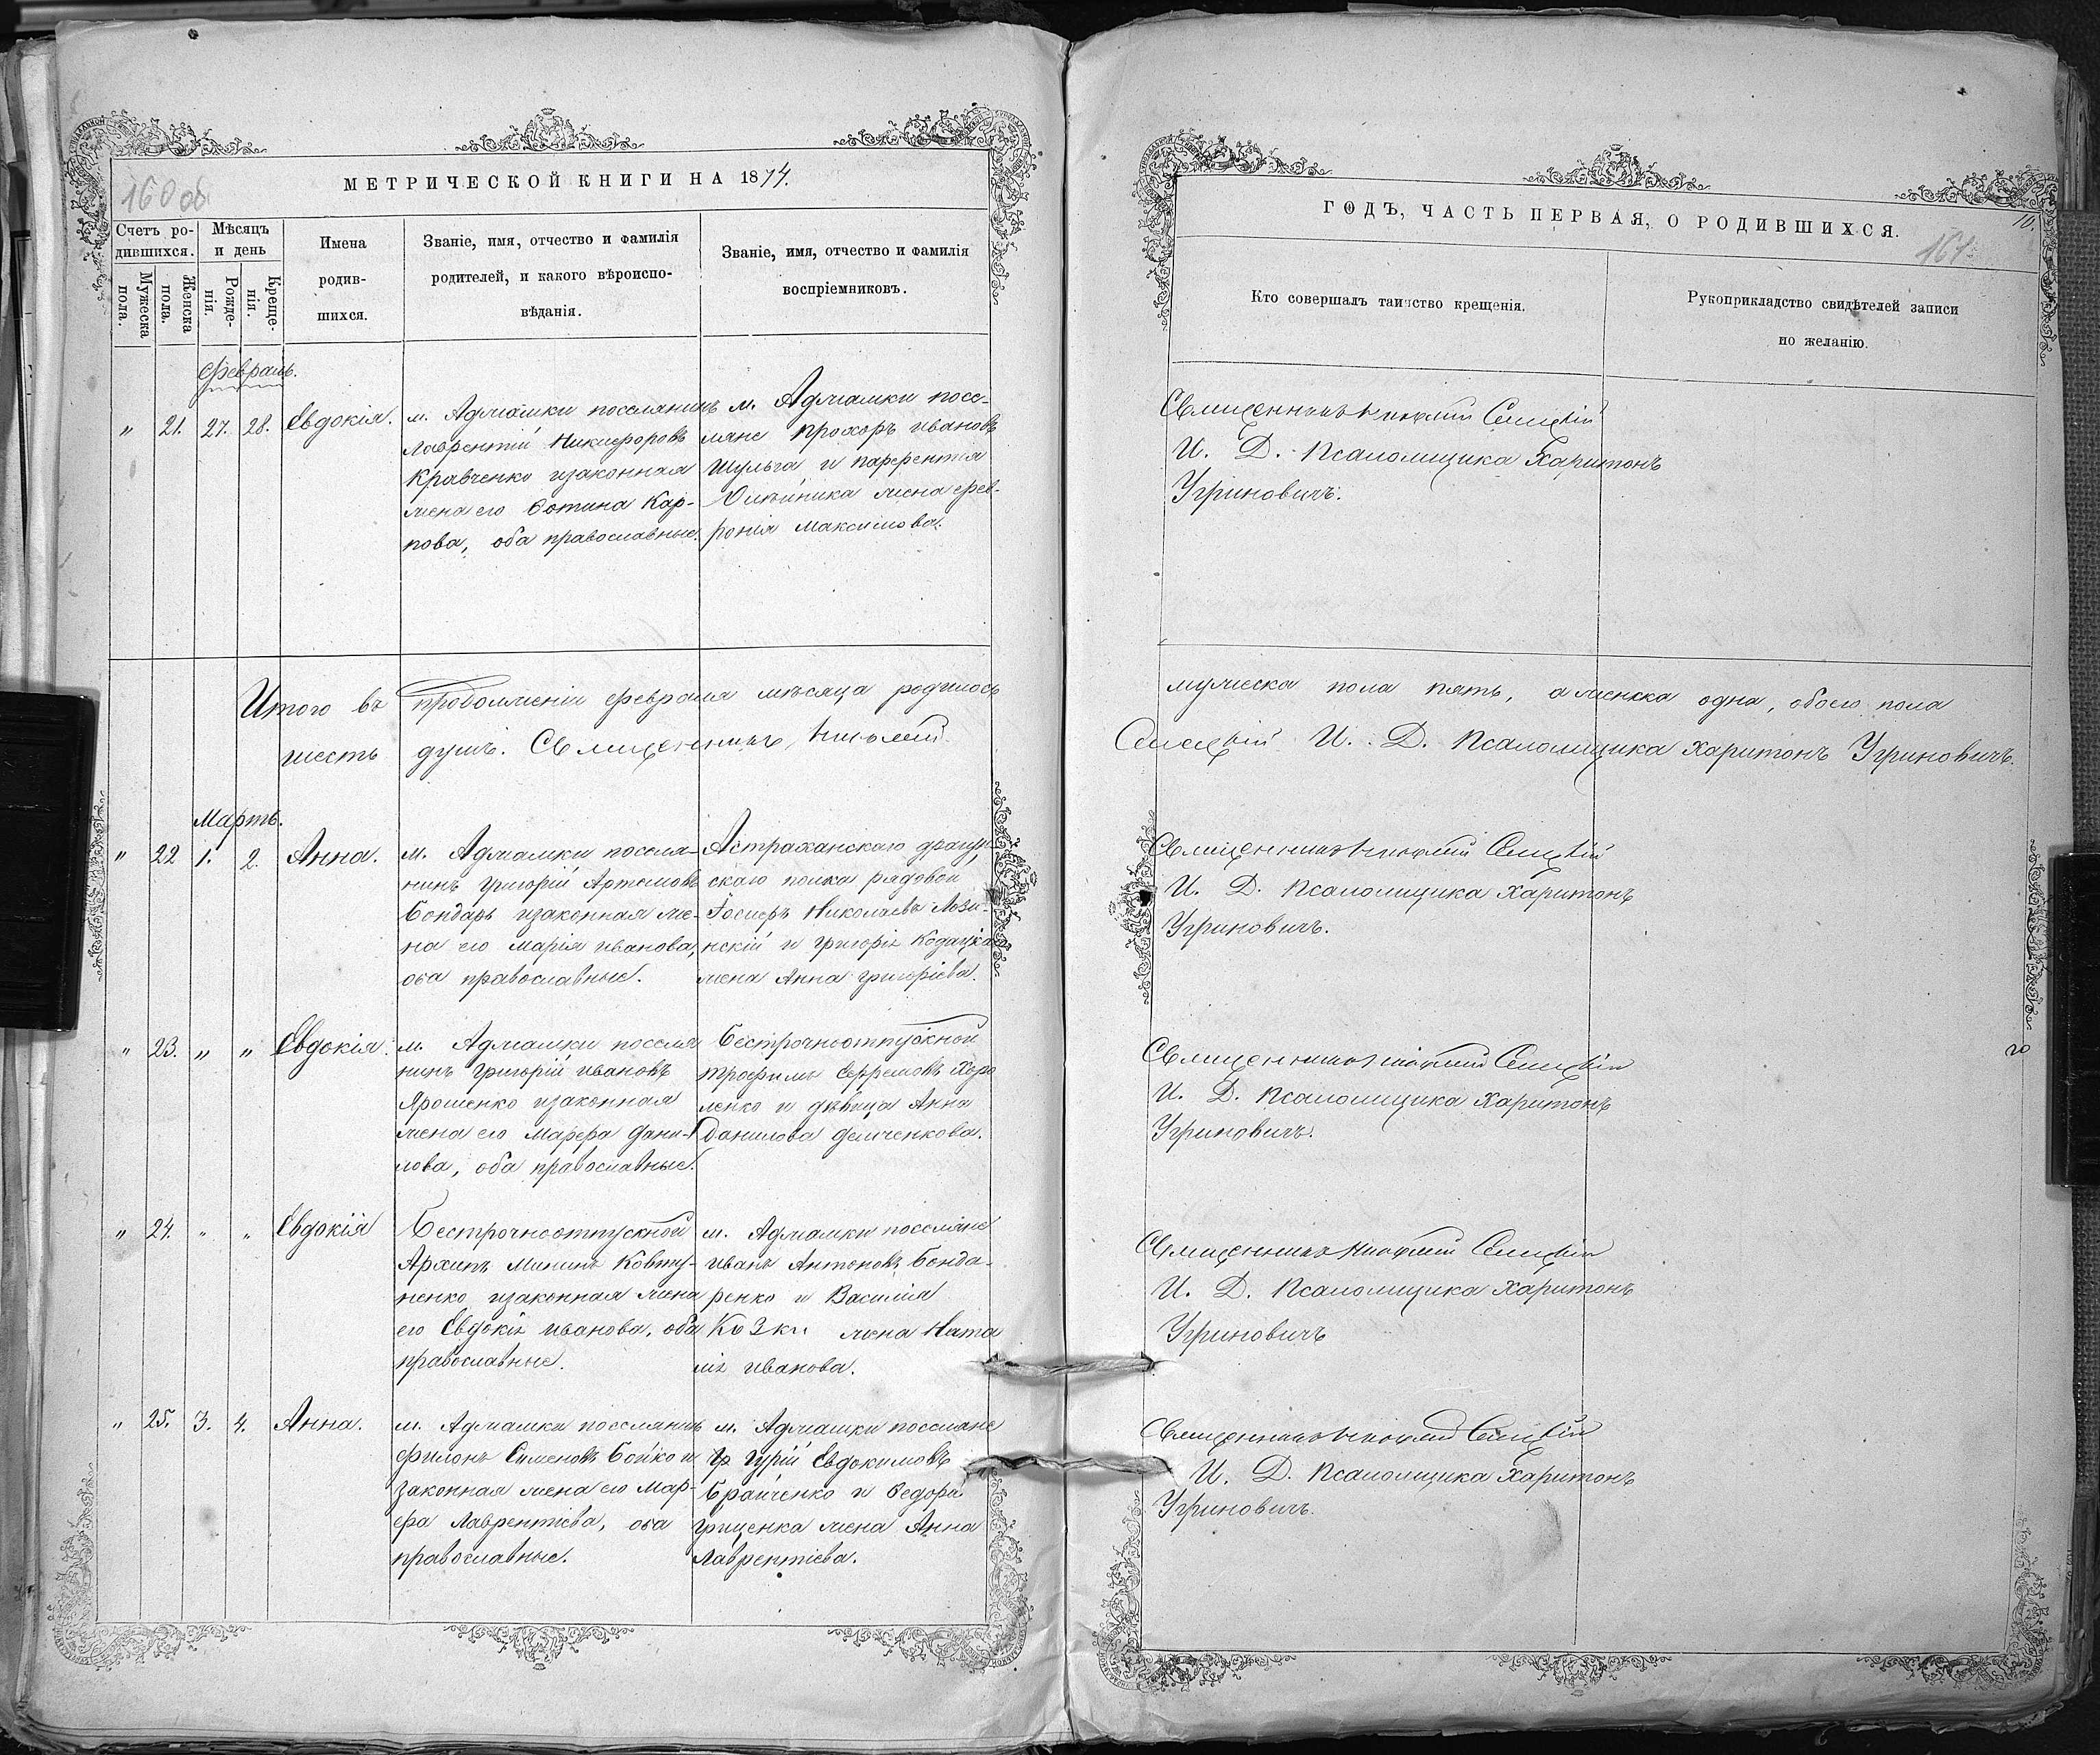 160 об
МЕТРИЧЕСКОЙ КНИГИ НА 1874.
Счетъ ро-
дившихся.
Мужеска пола.
Женска пола.
Мѣсяцъ
и день
Рожде-
нія.
Креще-
нія.
Имена
родив-
шихся.
Званіе, имя, отчество и фамилія
родителей, и какого вѣроиспо-
вѣданія.
Званіе, имя, отчество и фамилія
воспріемниковъ.
Февраль.
" 21. 27. 28. Евдокія.
м. Аджамки поселянинъ
Лаврентій Никифоровъ
Кравченко изаконная
жена его Фотина Кар-
пова, оба православные.
м. Аджамки посе-
ляне Прохоръ Ивановъ
Шульга и Парфентія
Олейника жена Фев-
ронія Максимова.
Итого въ продолженіи февраля мѣсяца родилось
шесть душъ. Священникъ
Мартъ.
" 22 1. 2. Анна.
м. Аджамки поселя-
нинъ Григорій Артемовъ
Бондарь изаконная же-
на его Марія Иванова,
оба православные.
Астраханскаго драгун
скаго полка рядовой
Іосифъ Николаевъ Лози-
нскій и Григорія
жена Анна Григоріева.
" 23. " " Евдокія.
м. Аджамки поселя
нинъ Григорій Ивановъ
Ярошенко изаконная
жена его Марфа Дани-
лова, оба православные.
Безсрочноотпускной
Трофимъ Ефремовъ Харо
ленко и дѣвица Анна
Данилова Демченкова.
" 24. " " Евдокія
Безсрочноотпускной
Архипъ Мининъ Ковту-
ненко изаконная жена
его Евдокія Иванова, оба
православные.
м. Аджамки поселяне
Иванъ Антоновъ Бонда-
ренко и Василія
Козки жена Ната
лія Иванова.
" 25. 3. 4. Анна.
м. Аджамки поселянинъ
Филонъ Сименовъ Бойко и
законная жена его Мар-
фа Лаврентіева, оба
православные.
м. Аджамки поселяне
Гр Гурій Евдокимовъ
Брайченко и Федора
Гриценка жена Анна
Лаврентіева.
ГОДЪ, ЧАСТЬ ПЕРВАЯ, О РОДИВШИХСЯ.
10.
161.
Кто совершалъ таинство крещенія.
Рукоприкладство свидѣтелей записи
по желанію.
Священникъ
И. Д. Псаломщика Харитонъ
Угриновичъ.
мужеска пола пять, а женска одна, обоего пола
И. Д. Псаломщика Харитонъ Угриновичъ.
Священникъ
И. Д. Псаломщика Харитонъ
Угриновичъ.
Священникъ
И. Д. Псаломщика Харитонъ
Угриновичъ.
Священникъ
И. Д. Псаломщика Харитонъ
Угриновичъ
Священникъ
И. Д. Псаломщика Харитонъ
Угриновичъ.